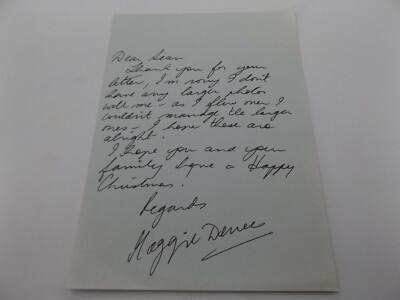 Dear Sean
Thank you for your
letter, I'm sorry I don't
have any larger photos
with me - as I flew over I
couldn't manage the larger
ones - I hope these are
alright.
I hope you and your
family have a Happy
Christmas.
Regards
Maggie Dence